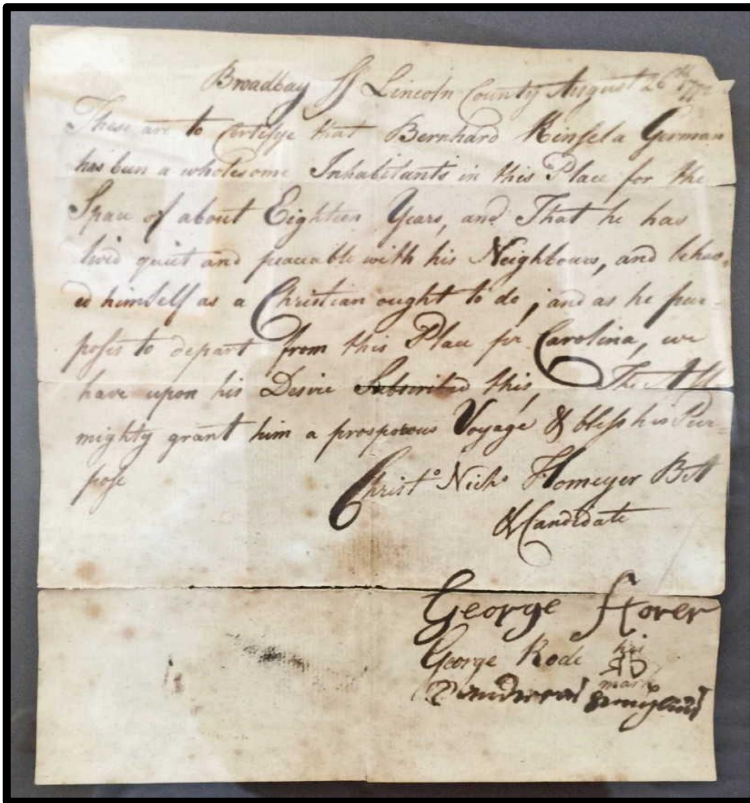 Broadbay SS Lincoln County August 26th
These are to Certifye that Bernhard Kinsel a German
has been a wholesome Inhabitants in this Place for the
Space of about Eighteen Years, and That he has
lived quiet and peaceable with his Neighbours, and behav-
ed himself as a Christian ought to do, and as he pur-
poses to depart from this Place for Carolina, we
have upon his Desire Subscribed this, The All
mighty grant him a prosperous Voyage & bless his Pur-
pose
Christo Nicho Homeyer
& Candidate
George Storer
George Rode his
mark